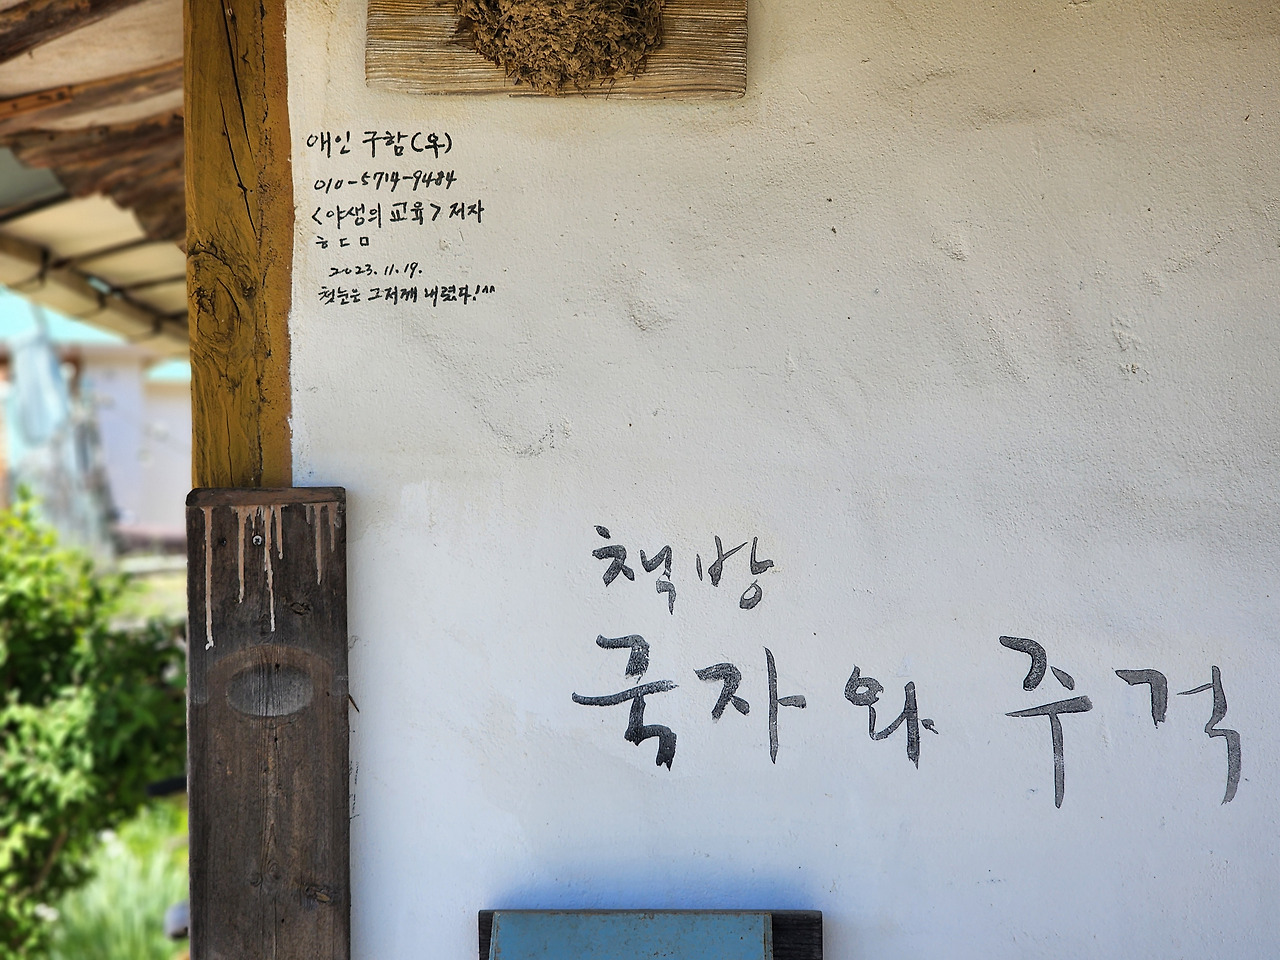 애인 구함(우)
010-5714-9484
<야생의 교육> 저자
ㅎㄷㅁ
2023.11.19.
첫눈은 그저께 내렸다!^^
책방
국자와 주걱